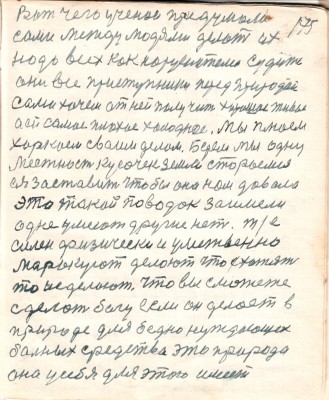 175
Вот чего ученое придумало
сами между людями делают их
надо всех как нарушителей судить
они все преступники перед природой
сами хочем от ней получит хорошое живое
а ей самое плохое холодное. Мы плюем
харкоем своим делом. Берем мы одну
местност кусочек земли стораемся
ея заставит чтобы она нам довала
это такой поводок заимели
одне имеют другие нет. т/е
силен физически и умственно
маракуют делоют что схотят
то исделоют. Что вы сможете
сделат богу если он делоет в
природе для бедно нуждающих
болных средства это природа
она у себя для этого имеет